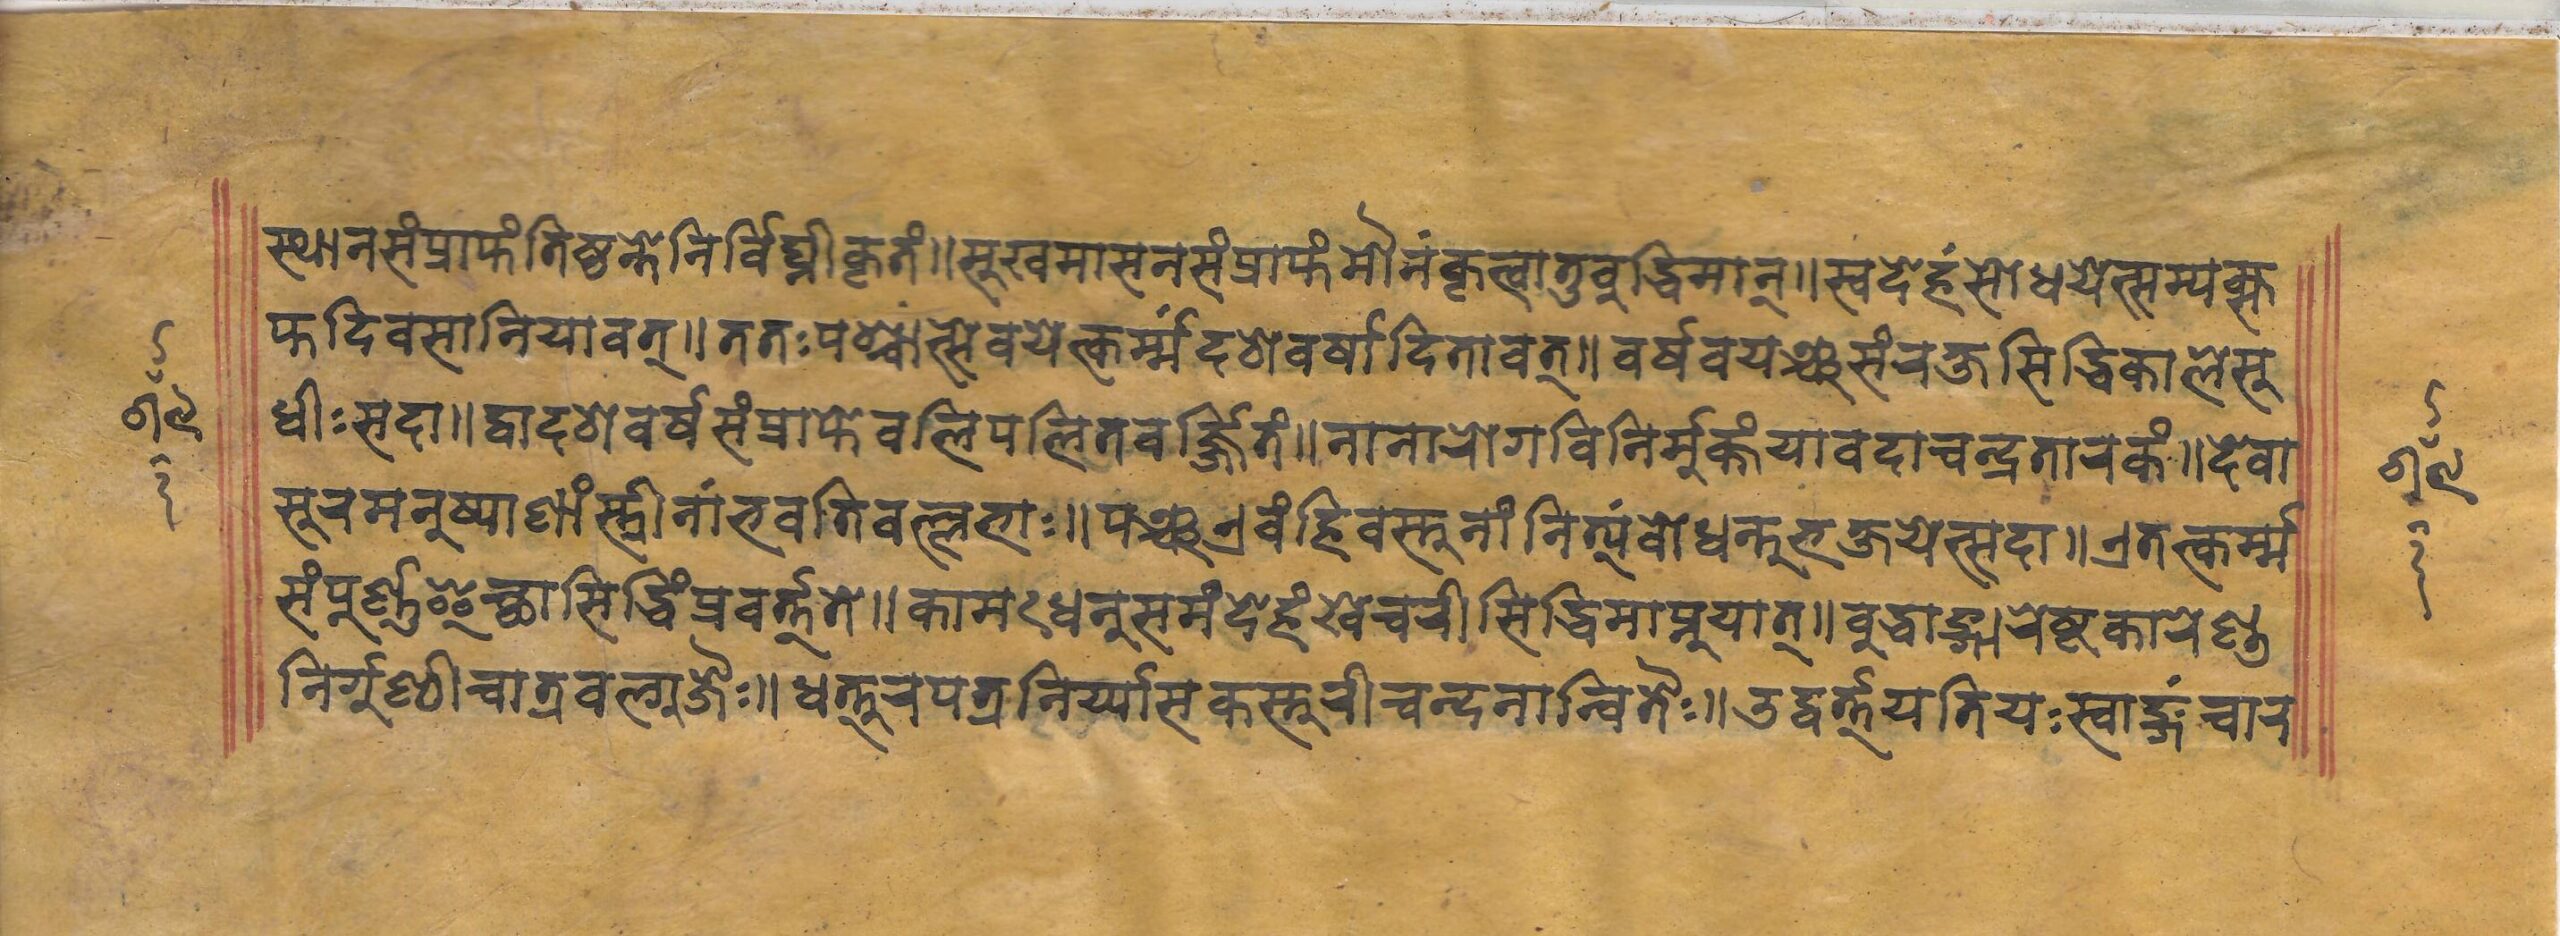 स्थानसंप्राप्तंतिष्ठन्तेनिर्विघ्नीकृतं॥सुखमासनसंप्राप्तंमौनंकृत्वातुबुद्धिमान्॥स्वदेहंसोधयेत्सम्यक्स
प्तदिवसानियावत्॥ततःपश्चात्सेवयेत्कर्म्मंदशेवर्षादितावत्॥वर्षवयञ्चसंरक्तसिद्धिकालेसु
धीःसदा॥द्वादशेवर्षसंप्राप्तेवलिपलितवर्ज्जितं॥नानारोगविनिर्मुक्तंयावदाचन्द्रतारकं॥देवा
सुरमनुष्याणांस्त्रीनांभवतिवल्लभाः॥पञ्चएवंहिवस्तुनांनित्यंबोधन्तुभक्तयेत्सदा॥एतत्कर्म्म
संपूर्ण्णइच्छासिद्धिंप्रवर्त्तते॥कामःधनुसमंदेहंखेचरीसिद्धिमाप्नुयात्॥बुद्धाङ्गारेष्टकारेणु
निर्गुण्ठीचात्रवल्गुजैः॥धत्तुरपत्रनिर्य्यासकस्तुरीचन्दनान्वितैः॥उद्वर्त्तयतियःस्वाङ्गंचार